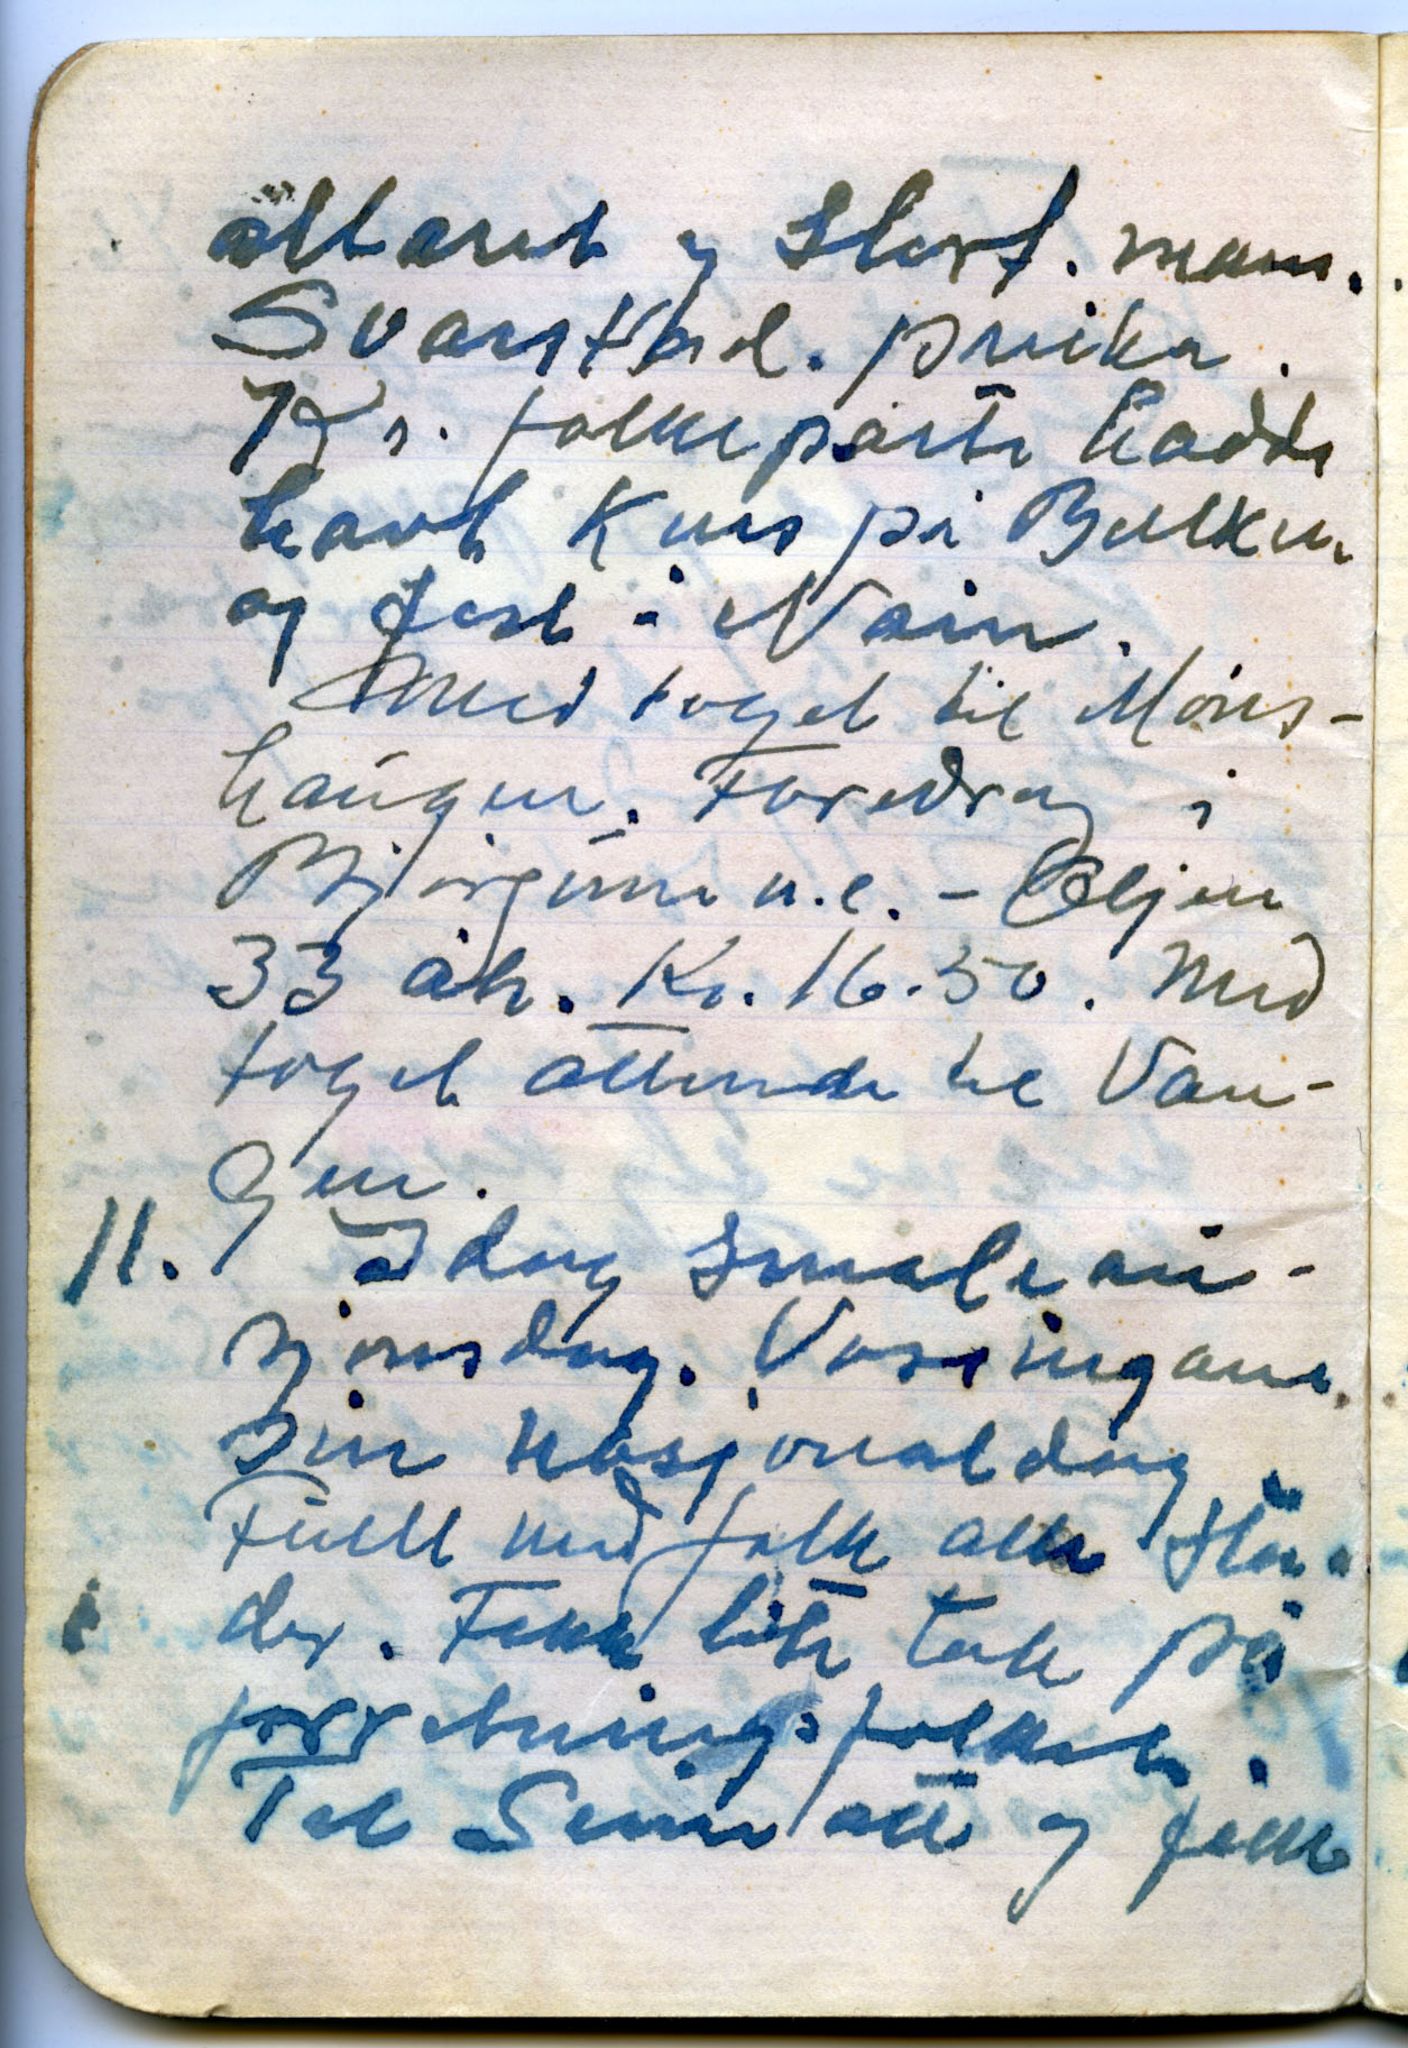 altaret og Stort. mann.
Svarstad. preika.
Kr. folkeparti hadde
havt Kurs på Bulken
og fest i Nain.
Med toget til Møns-
haugen. Foredrag i
Bjørgum u.l. - Oljen
33 åh. Kr. 16.50. Med
toget attende til Van-
gen.
11. Idag Smalesau-
sjonsdag. Vossingane
sin nasjonaldag.
Fullt med folk alle sta-
der. Fekk lite tak på
forretningsfolket.
Til Seim att og fekk